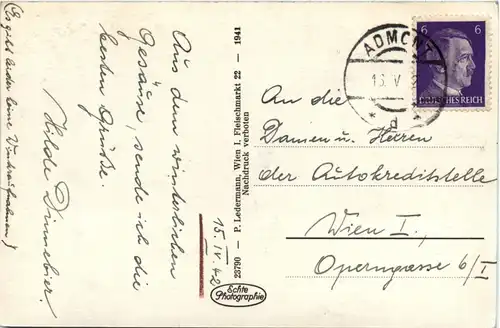 (Es gibt leider keine Winteraufnahmen)
Aus dem winterlichen
Gesäuse, sende ich die
besten Grüße.
Hilde Dinnebier.
15. IV. 42
23790 – P. Ledermann, Wien I, Fleischmarkt 22 – 1941
Nachdruck verboten
Echte
Photographie
ADMONT
15. V
* d *
6 6
DEUTSCHES REICH
An die
Damen u. Herren
der Autokreditstelle
Wien I.,
Operngasse 6/I